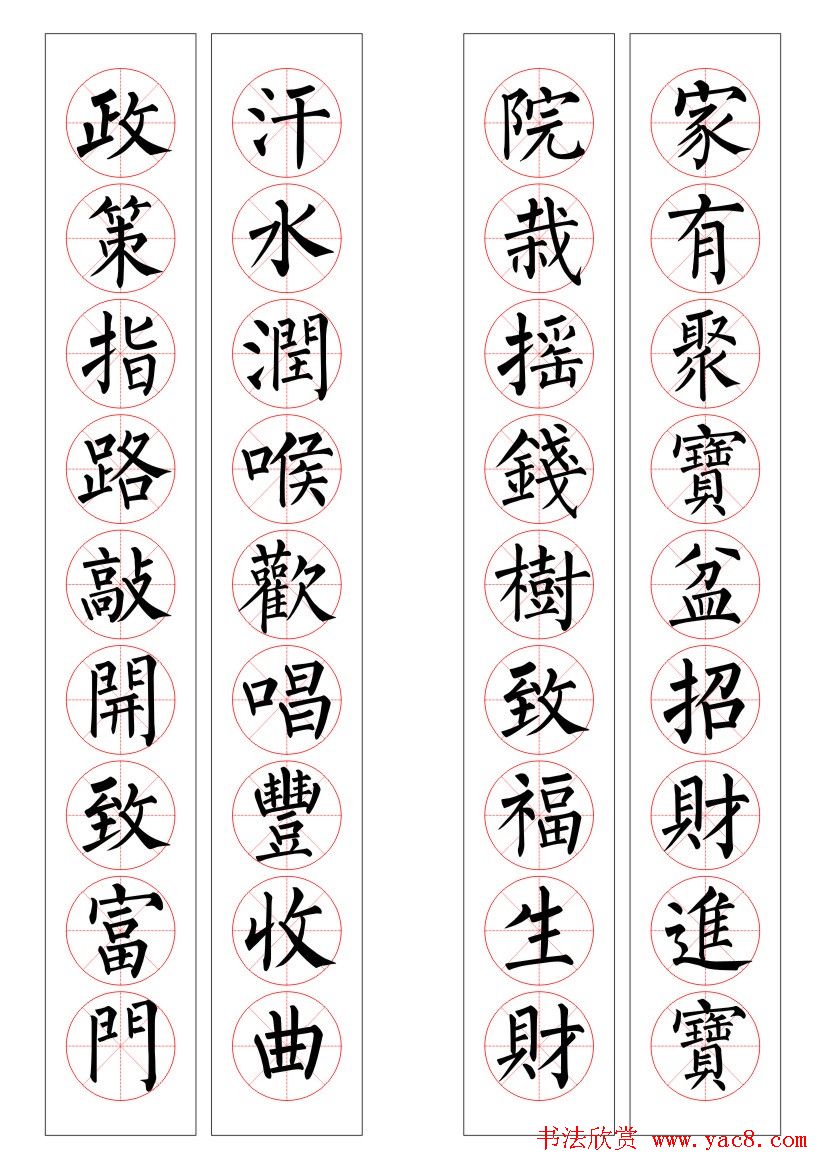 家有聚寶盆招財進寶
院栽摇錢樹致福生財
汗水潤喉歡唱豐收曲
政策指路敲開致富門
书法欣赏 www.yac8.com